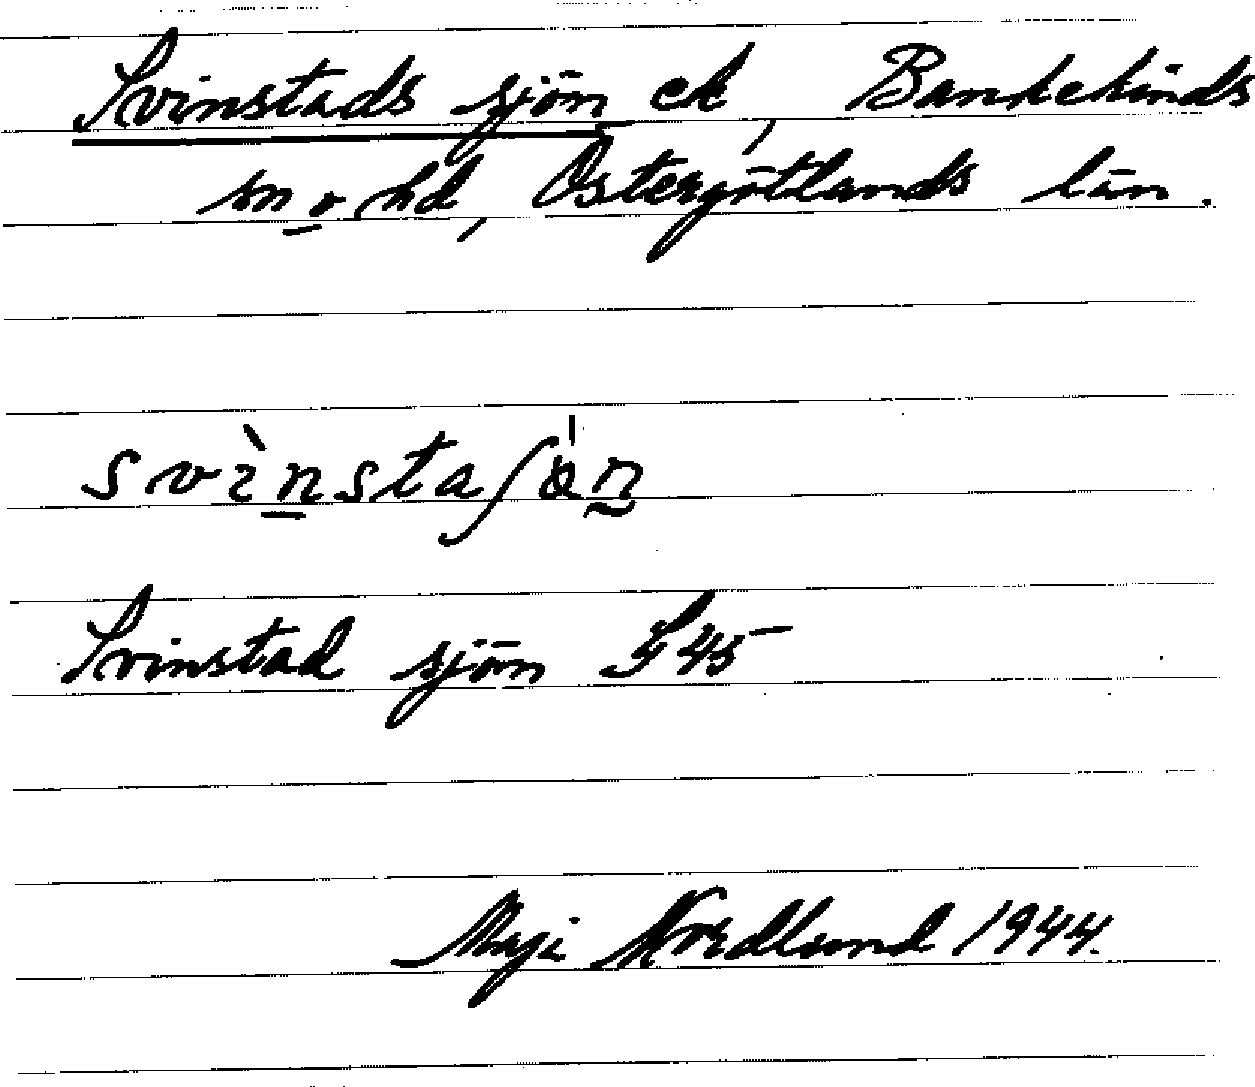 Svinstads sjön ek, Bankekinds
sn o hd, Östergötlands län.
svìnstaʃö́n
Svinstad sjön S 45
Maji Nordlund 1944.